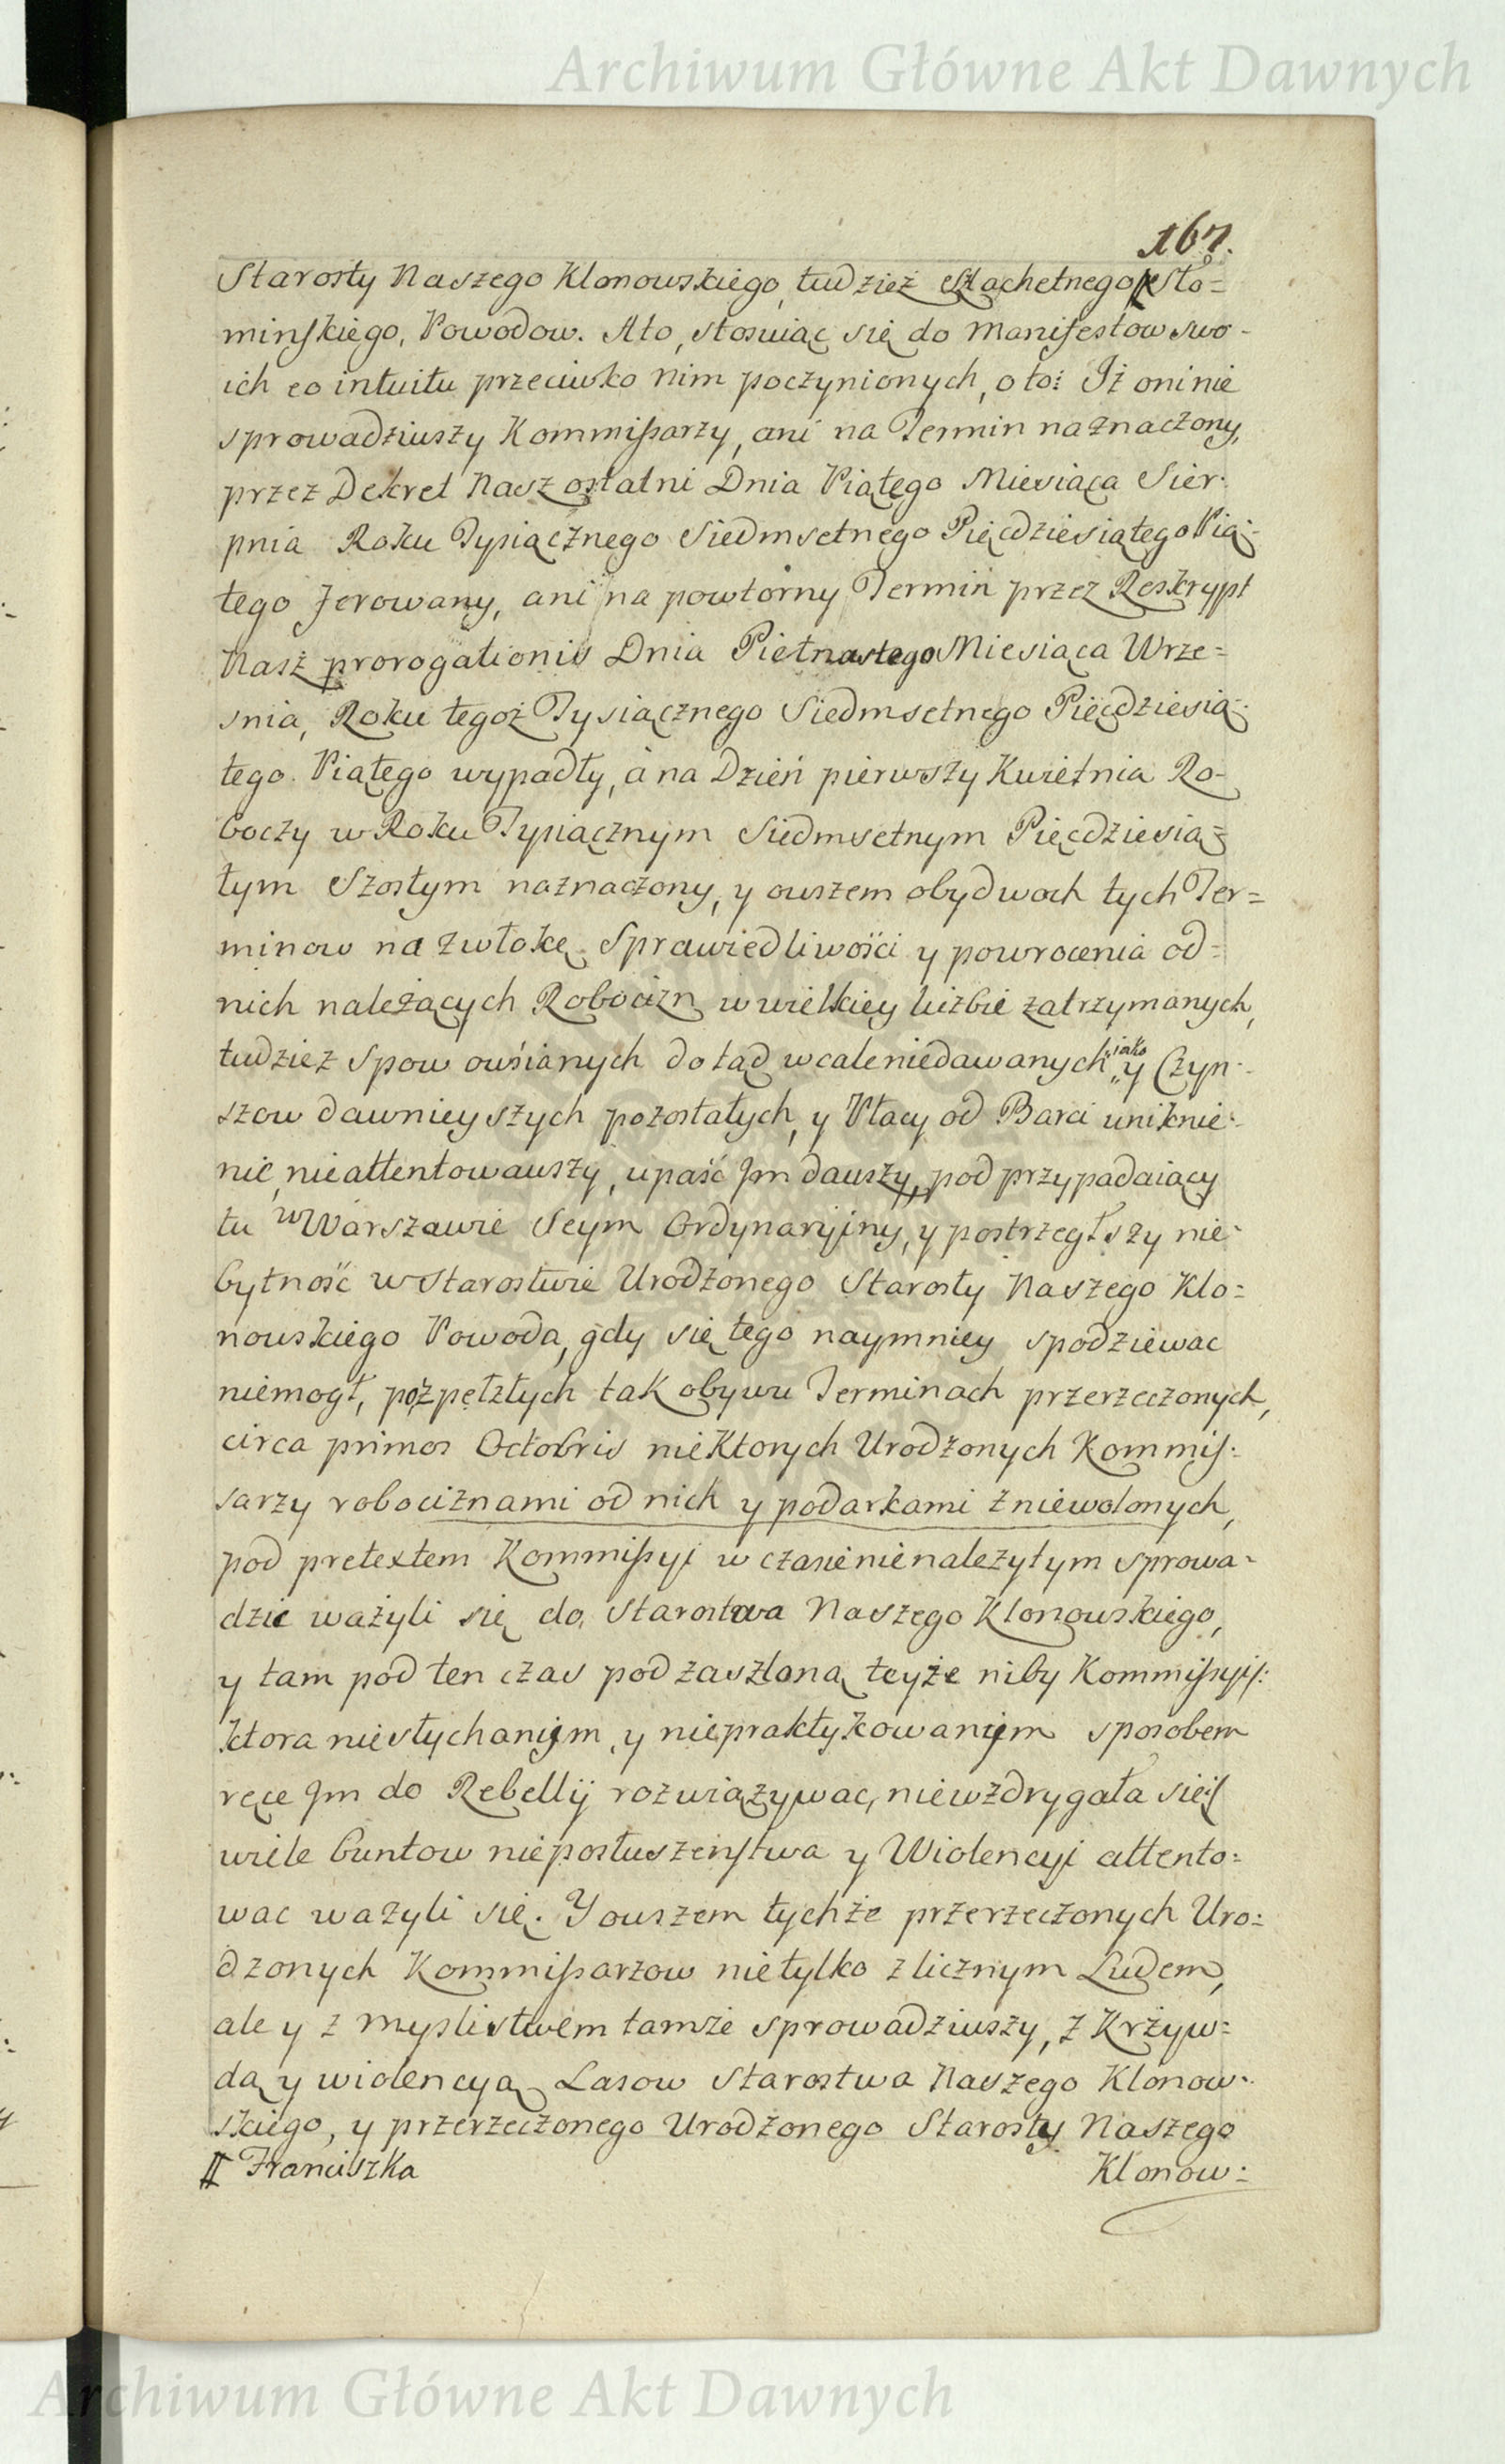 Archiwum Główne Akt Dawnych
167.
Starosty Naszego Klonowskiego, tudzież Szlachetnego Sło=
minskiego, Powodow. Ato, stosuiąc się do Manifestow swo-
ich eo intuitu przeciwko nim poczynionych, o to: Iż oni nie
sprowadziwszy Kommissarzy, ani na Termin naznaczony,
przez Dekret Nasz ostatni Dnia Piątego Miesiąca Sier-
pnia Roku Tysiącznego Siedmsetnego Pięcdziesiątego Pią-
tego ferowany, ani na powtorny Termin przez Reskrypt
Nasz prorogationis Dnia Pietnastego Miesiąca Wrze=
snia, Roku tegoż Tysiącznego Siedmsetnego Pięcdziesią-
tego Piątego wypadły, a na Dzień pierwszy Kwietnia Ro-
boczy w Roku Tysiącznym Siedmsetnym Pięcdziesią=
tym Szostym naznaczony, y owszem obydwoch tych Ter=
minow na zwłokę Sprawiedliwości y powrocenia od=
nich należących Robocizn w wielkiey liczbie zatrzymanych,
tudziez Spow owsianych dotąd wcale niedawanych jako y Czyn-
szow dawnieyszych pozostałych, y Płacy od Barci uniknie-
nie, nieattentowawszy, upaść Im dawszy, pod przypadaiący
tu w Warszawie Seym Ordynaryjny, y postrzegłszy nie-
bytność w Starostwie Urodzonego Starosty Naszego Klo=
nowskiego Powoda, gdy się tego naymniey spodziewac
niemogł, po zpełzłych tak obywu Terminach przerzeczonych,
circa primos Octobris niektorych Urodzonych Kommis=
sarzy robociznami od nich y podarkami zniewolonych,
pod pretextem Kommissyi w czasie nienalezytym sprowa-
dzic ważyli się do Starostwa Naszego Klonowskiego,
y tam pod ten czas pod zasłoną teyże niby Kommissyi
ktora niesłychanym, y niepraktykowanym sposobem
ręce Im do Rebellij rozwiązywac, niewzdrygała się
wiele buntow nieposłuszeństwa y Wiolencyi attento=
wac wazyli się. Y owszem tychże przerzeczonych Uro=
dzonych Kommissarzow nietylko z licznym Ludem,
ale y z mysliwstwem tamże sprowadziwszy, z Krzyw=
dą y wiolencyą Lasow Starostwa Naszego Klonow-
skiego, y przerzeczonego Urodzonego Starosty Naszego
Franciszka Klonow=
Archiwum Główne Akt Dawnych